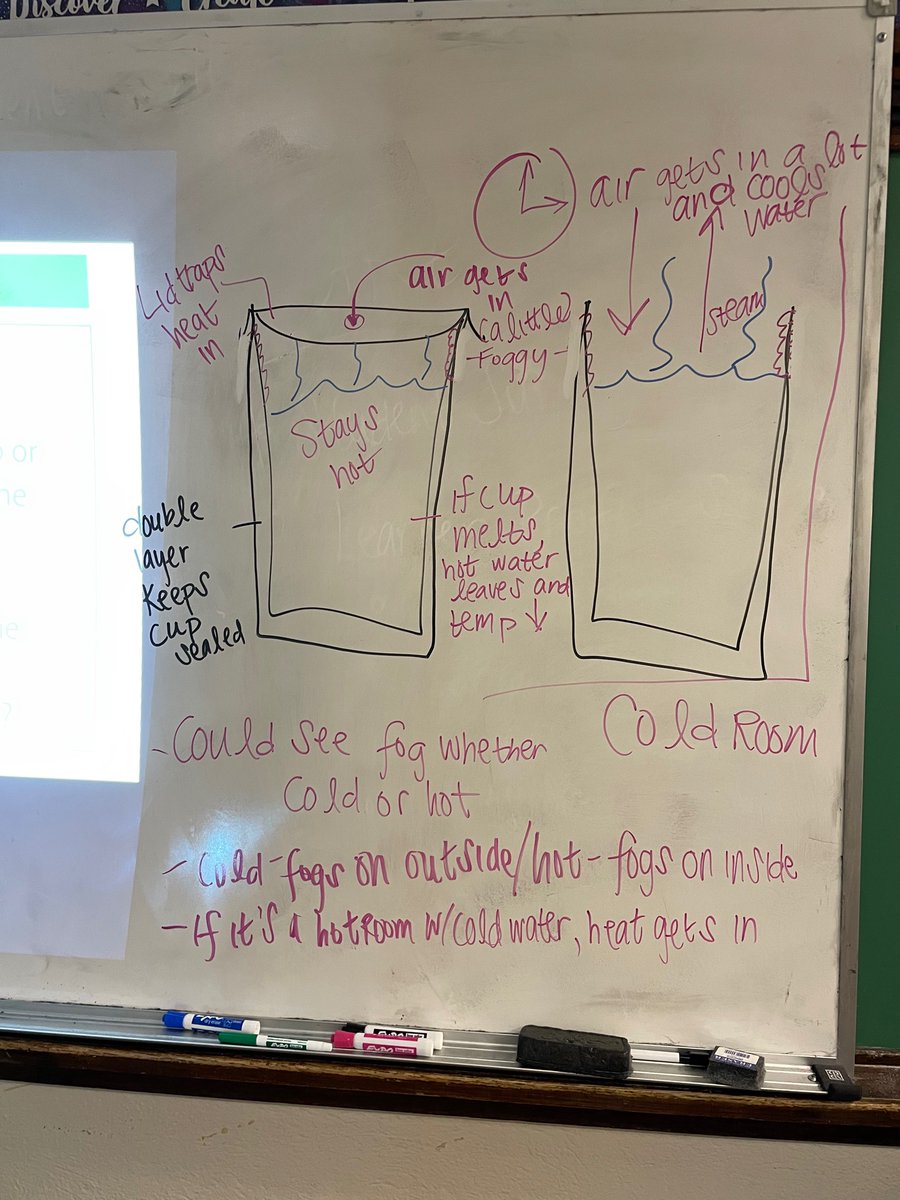 Discover
air gets in a lot
and cools
water
Lid traps
heat
in
air gets
in
(a little)
-Foggy-
steam
Stays
hot
double
layer
keeps
cup
sealed
If cup
melts,
hot water
leaves and
temp ↓
Cold Room
- Could see fog whether
cold or hot
- Cold-fogs on outside/hot-fogs on inside
- If it's a hot room w/cold water, heat gets in
or
?
EXPO
EXPO
EXPO